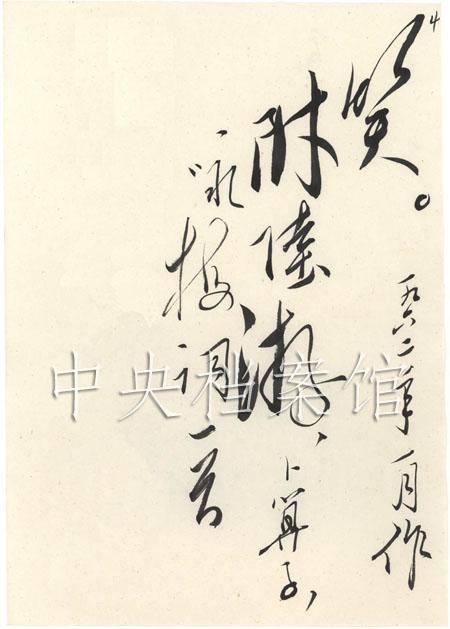 4
笑。
一九六二年一月作
附陸游、卜算子、
咏梅词一首
中央档案馆